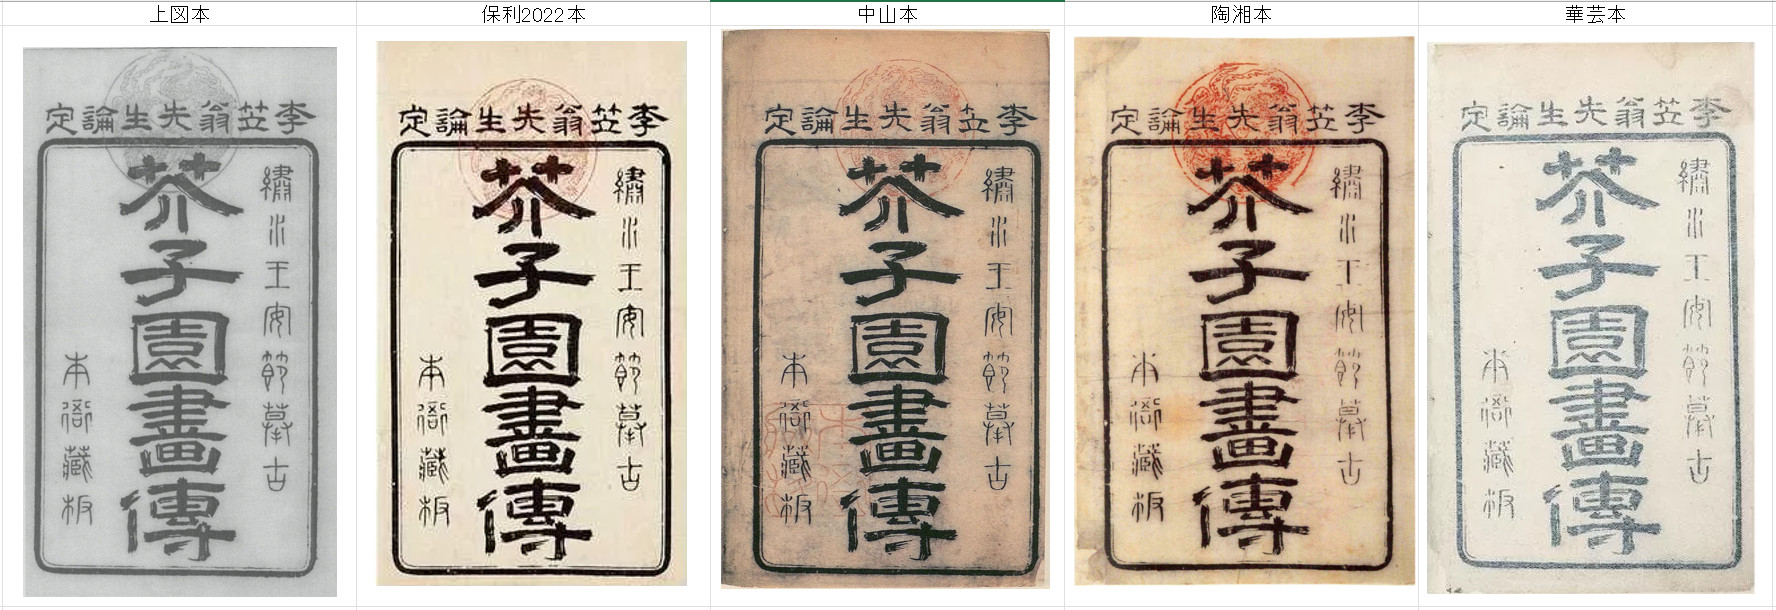 上図本
保利2022本
中山本
陶湘本
華芸本
李笠翁先生論定
繡水王安節摹古
芥子園畫傳
本衙藏板
李笠翁先生論定
繡水王安節摹古
芥子園畫傳
本衙藏板
李笠翁先生論定
繡水王安節摹古
芥子園畫傳
本衙藏板
李笠翁先生論定
繡水王安節摹古
芥子園畫傳
本衙藏板
李笠翁先生論定
繡水王安節摹古
芥子園畫傳
本衙藏板